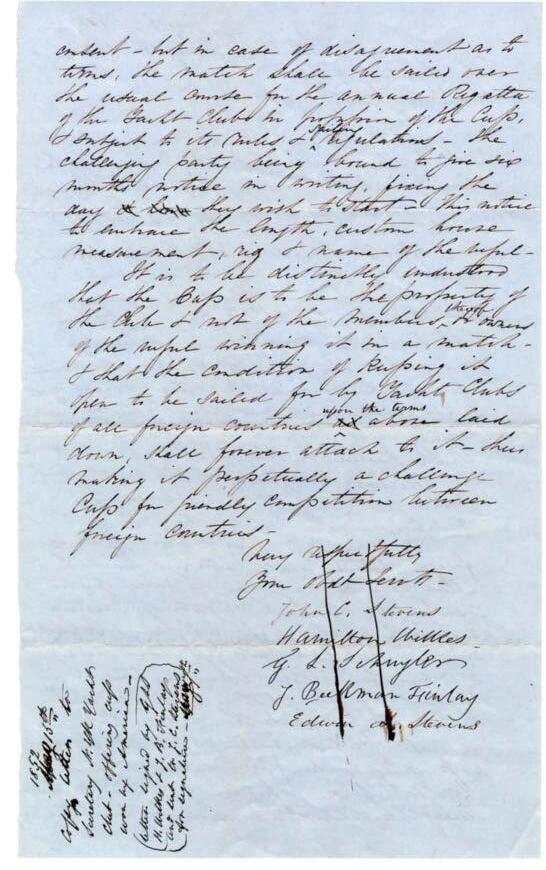 consent - but in case of disagreement as to
terms, the match shall be sailed over
the usual course for the annual Regatta
of the Yacht Club in possession of the Cup,
& subject to its rules & sailing regulations - the
challenging party being bound to give six
months notice in writing, fixing the
day they wish to start - this notice
to embrace the length, custom house
measurement, rig & name of the vessel -
It is to be distinctly understood
that the Cup is to be the property of
the Club & not of the members thereof or owners
of the vessel winning it in a match -
& that the condition of keeping it
open to be sailed for by Yacht Clubs
of all foreign countries upon the terms above laid
down, shall forever attach to it - thus
making it perpetually a challenge
Cup for friendly competition between
foreign countries -
Very respectfully
Your Obdt Servts -
John C. Stevens
Hamilton Wilkes
G. L. Schuyler
J. Beekman Finlay
Edwin A. Stevens
1852
15th
Copy letter to
Secretary N.Y. Yacht
Club - offering cup
won by America -
(letter signed by
H. Wilkes & J. B. Finlay
and sent to J. C. Stevens
for signature -